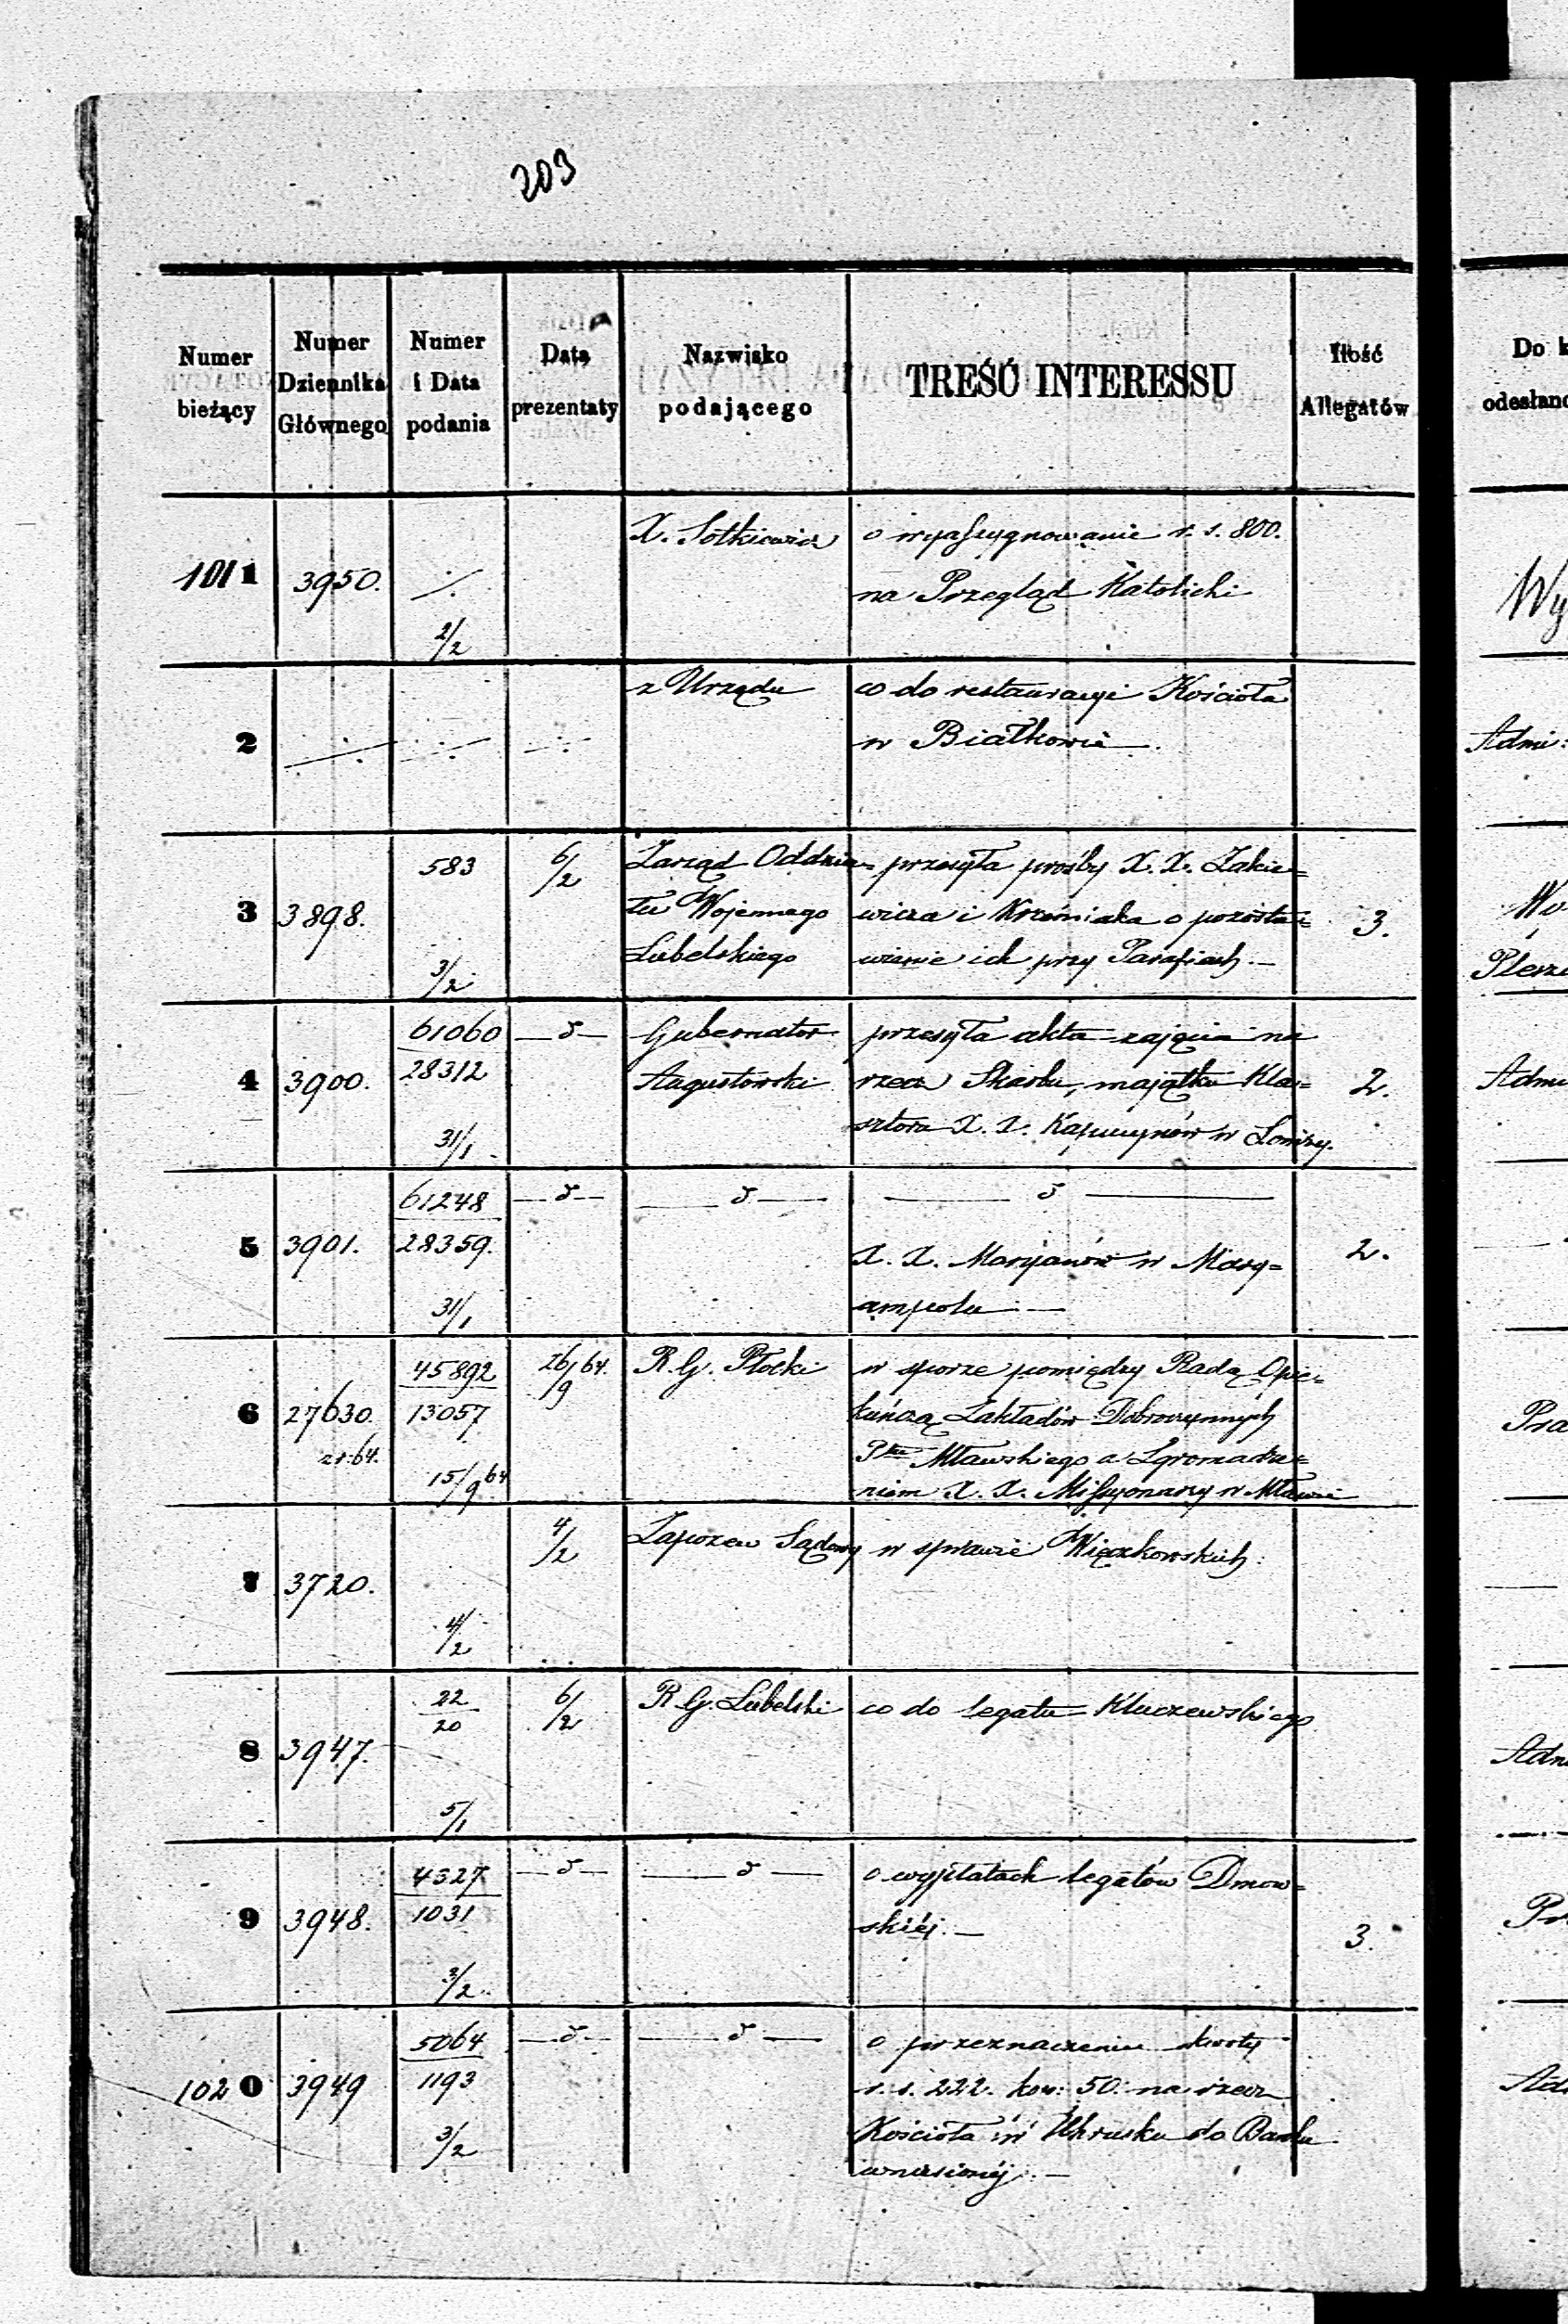 203
Numer bieżący
Numer Dziennika Głównego
Numer i Data podania
Data prezentaty
Nazwisko podającego
TREŚĆ INTERESSU
Ilość Allegatów
Do k
odesłano
1011 3950. ·/. 2/2
X. Sotkiewicz
o wyassygnowanie r. s. 800.
na Przegląd Katolicki
Wy
2 ·/· ·/· ·/·
z Urzędu
co do restauracyi Kościoła
w Białkowie.
Admi:
3 3898. 583 3/2 6/2
Zarząd Oddzia=
łu Wojennego
Lubelskiego
przesyła prośby X. X. Zakie=
wicza i Krzéniaka o pozosta=
wienie ich przy Parafiach.—
3.
4 3900. 61060 28312 31/1 —d—
Gubernator
Augustowski
przesyła akta zajęcia na
rzecz Skarbu, majątku Kla=
sztoru X. X. Kapucynów w Łomży.
2.
5 3901. 61248 28359. 31/1 —d— —d— —d—
X. X. Maryanów w Mary=
ampolu.—
2.
6 27630. z r. 64. 45892 13057 15/9 64 26/9 64.
R. G. Płocki
w sporze pomiędzy Radą Opie=
kuńczą Zakładów Dobroczynnych
Ptu Mławskiego a Zgromadze=
niem X. X. Missyonarzy w Mławie
Pra
7 3720. 4/2 4/2
Zapozew Sądowy
w sprawie Więckowskich.
8 3947. 22 20 5/1 6/2
R. G. Lubelski
co do legatu Kluczewskiego
9 3948. 4527 1031 3/2 —d— —d—
o wypłatach legatów Dmow=
skiéj.—
3.
Pr
1020 3949 5064 1193 3/2 —d— —d—
o przeznaczeniu kwoty
r. s. 222. kop: 50. na rzecz
Kościoła w Uhrusku do Banku
wniesionéj.—